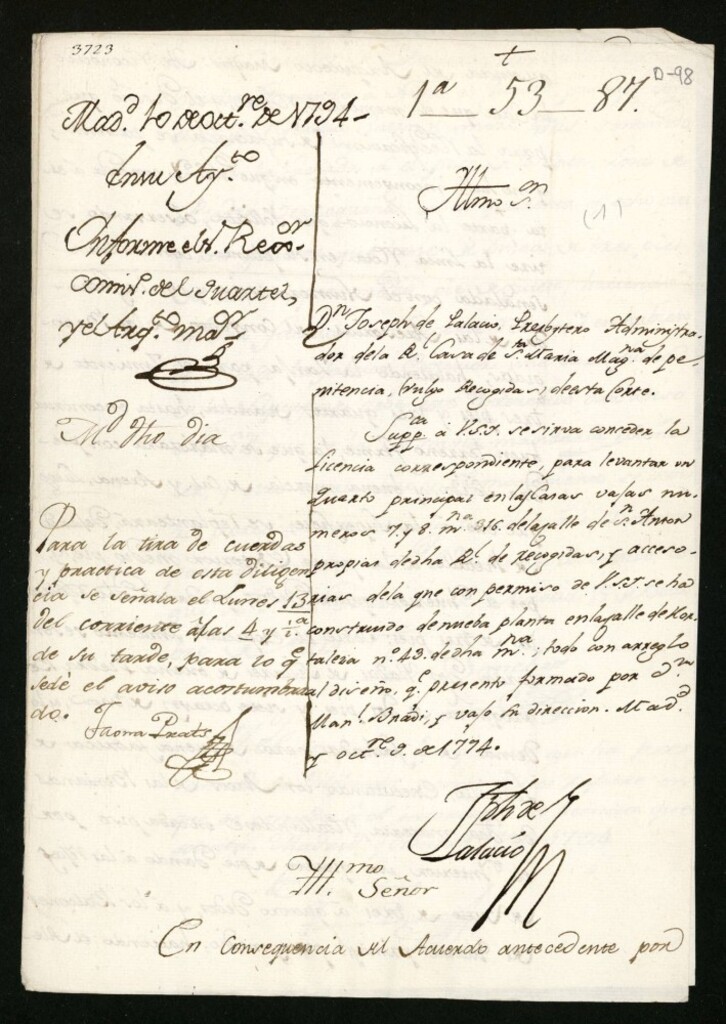 3723
D-98
+
1ª 53 87.
(1)
Mad.d 10 de oct.re de 1794
En su Ay.to
Informe el S.r Reg.or
Comis.o del quartel,
y el Arq.to m.or
M.d dho dia
Para la tira de cuerdas
y practica de esta diligen
cia se señala el Lunes 13
del corriente á las 4 y
de su tarde, para lo q.e
se dé el aviso acostumbra
do.
Prats
Illmo S.or
D.n Joseph de Palacio, Presbytero Administra
dor de la R.l Casa de S.ta Maria Mag.na de pe
nitencia, (vulgo Recogidas) de esta Corte.
Supp.ca á V.S.I. se sirva conceder la
licencia correspondiente, para levantar un
quarto principal en las Casas vajas nu
meros 7 y 8. m.na 316. de la calle de S.n Anton
propias de dha R.l de Recogidas, y acceso
rias de la que con permiso de V.S.I. se ha
construido de nueva planta en la calle de Hor
taleza n.º 43. de dha m.na; todo con arreglo
al diseño, q.e presento formado por D.n
Man.l Bradi, y vajo su direccion. Mad.d
y oct.re 9. de 1794.
Jph de
Palacio
Ill.mo
Señor
En Consequencia del Acuerdo antecedente por